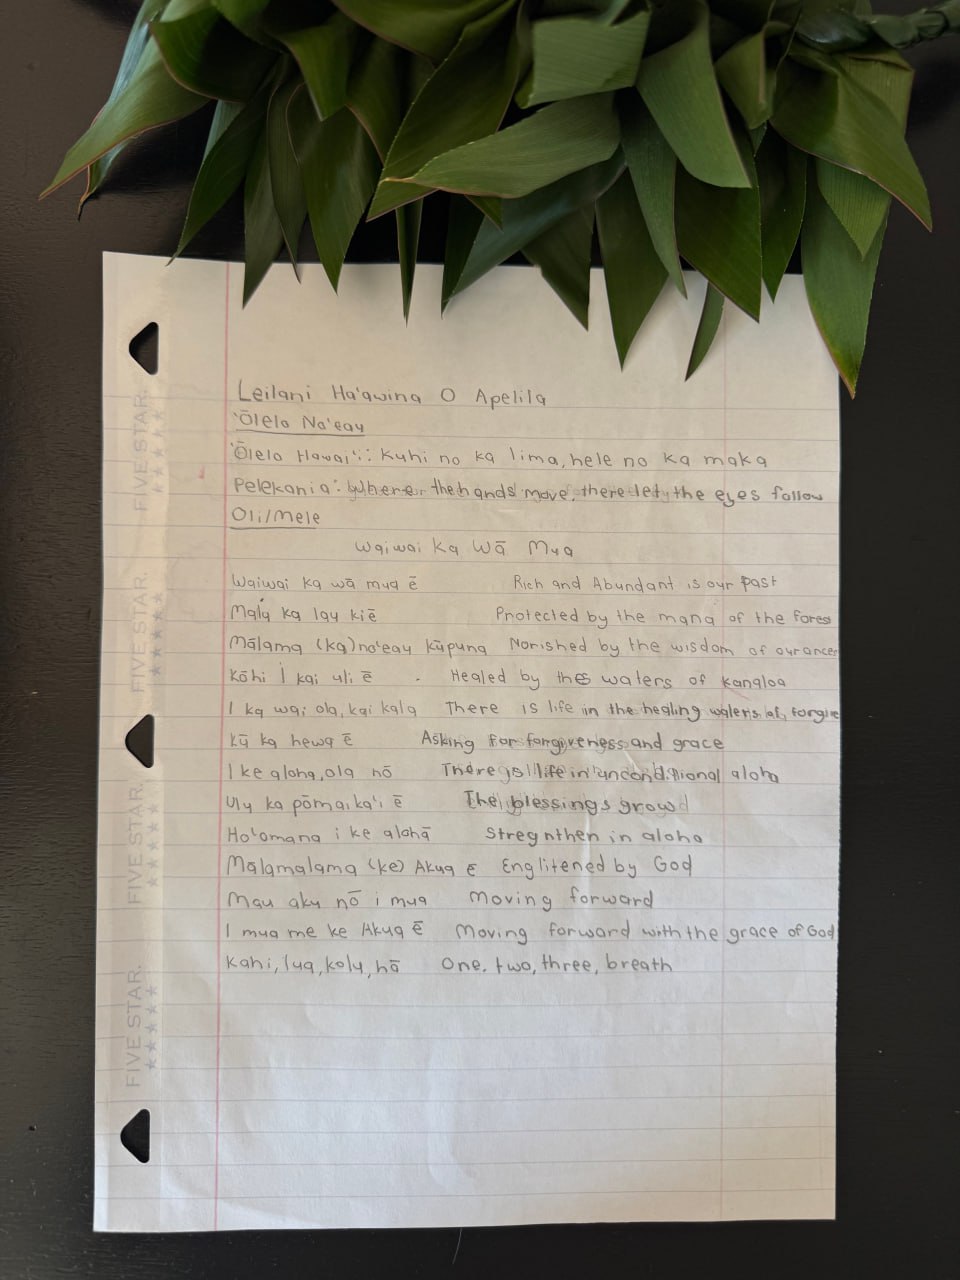 Leilani Ha'awina O Apelila
'Ōlelo No'eau
'Ōlelo Hawai'i: Kuhi no ka lima, hele no ka maka
Pelekania: Where the hands move, there let the eyes follow
Oli/Mele
Waiwai ka Wā Mua
Waiwai ka wā mua ē Rich and Abundant is our past
Malu ka lau kiē Protected by the mana of the fores
Mālama (ka) no'eau kūpuna Norished by the wisdom of our ances
Kōhi I kai uli ē Healed by the waters of Kanaloa
I ka wai ola, kai kala There is life in the healing waters of, forgive
Kū ka hewa ē Asking for forgiveness and grace
I ke aloha, ola nō There is life in unconditional aloha
Ulu ka pōmaika'i ē The blessings grow
Ho'omana i ke alohā Stregnthen in aloha
Mālamalama (ke) Akua ē Englitened by God
Mau aku nō i mua Moving forward
I mua me ke Akua ē Moving forward with the grace of God
Kahi, lua, kolu, hō One, two, three, breath
FIVE STAR.
FIVE STAR.
FIVE STAR.
FIVE STAR.